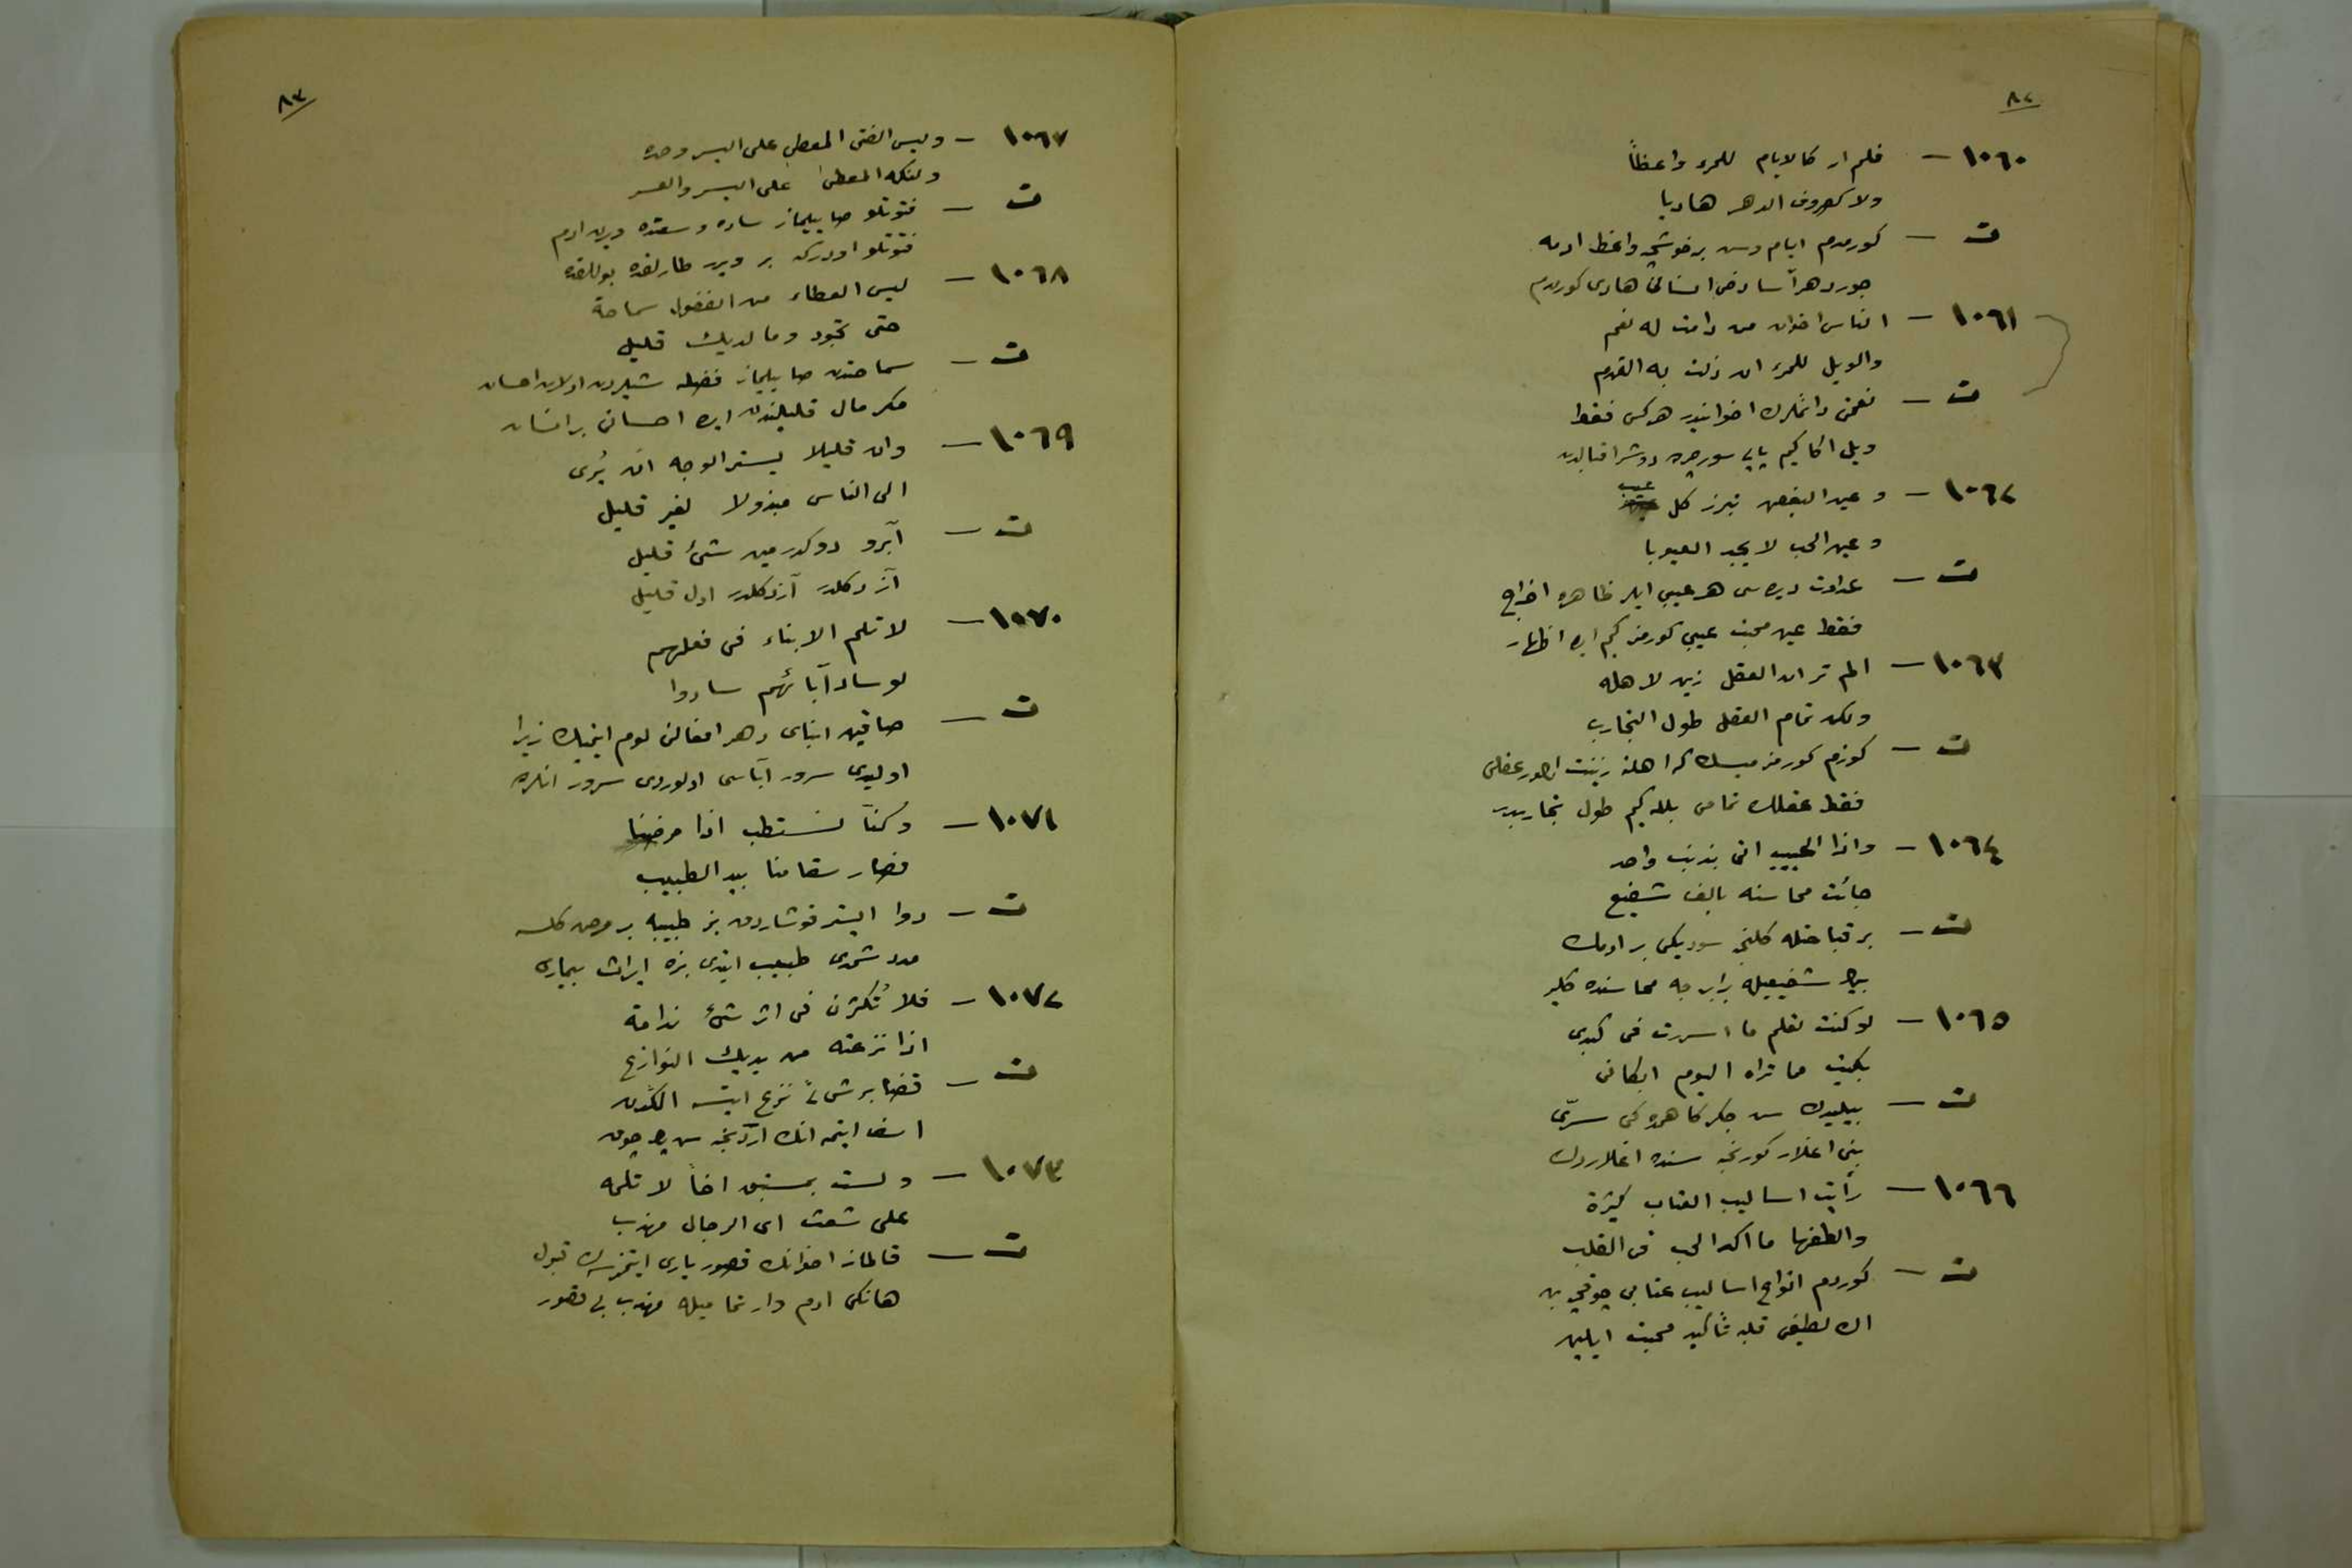 ٨٢
١٠٦٠ – فلم ار كالايام للمرء واعظاً
ولا كصروف الدهر هاديا
ت – كورمدم ايام وش بر خوشجه واعظ ادمه
جور دهر آسا دخى انسانى هادى كورمدم
١٠٦١ – الناس اخوان من دامت له نعم
والويل للمرء ان زلت به القدم
ت – نعمتى دائملرك اخوانيدر هركس فقط
ويل اكا كيم پايى سورچوب دوشر اقبالدن
١٠٦٢ – وعين البغض تبرز كل عيب
وعين الحب لا يجد العيوبا
ت – عداوت ديده سى هر عيبى ايلر ظاهره اخراج
فقط عين محبت عيبى كورمز كيم ايده اظهار
١٠٦٣ – الم تر ان العقل زين لاهله
ولكن تمام العقل طول التجارب
ت – كوزم كورمز ميسك كه اهلنه زينت عقلى
فقط عقلك تمامى بيله كيم طول تجاربدر
١٠٦٤ – واذا الحبيب اتى بذنب واحد
جائت محاسنه بالف شفيع
ت – بر قباحتله كلنجه سوديكى بر ادمك
بيك شفيعيله برابرجه محاسنده كلير
١٠٦٥ – لو كنت تعلم ما اسررت فى كبدى
بكيت مما تراه اليوم ابكانى
ت – بيليدك سن جكركاهمده كى سرّى
بنى اغلار كورنجه سنده اغلاردك
١٠٦٦ – رأيت اساليب العتاب كثيرة
والطفها ما اكد الحب فى القلب
ت – كوردم انواع اساليب عتابى چوقجه بن
اك لطيفى قلبه تأكيد محبت ايليين
٨٣
١٠٦٧ – وليس الفتى المعطى على اليسر وحده
ولكنه المعطى على اليسر والعسر
ت – فتوتلو صاييلماز ساده وسعتده ويرن ادم
فتوتلو اودركه بر ويرر طارلقده بوللقده
١٠٦٨ – ليس العطاء من الفضول سماحة
حتى تجود وما لديك قليل
ت – سماحتدن صاييلماز فضله شيلردن اولان احسان
مكر مال قليلندن ايده احسان بر انسان
١٠٦٩ – وان قليلا يستر الوجه ان يُرى
الى الناس مبذولا لغير قليل
ت – آبرو دوكدرمين شئ قليل
آز دكلدر آز دكلدر اول قليل
١٠٧٠ – لا تلم الابناء فى فعلهم
لو ساد آبائهم سادوا
ت – صاقين ابناى دهر افعالنى لوم ايتميك زيرا
اوليدى سرور آباسى اولوردى سرور انلرده
١٠٧١ – وكنّا نستطب اذا مرضنا
فصار سقامنا بيد الطبيب
ت – دوا ايستر قوشاردق بز طبيبه بر مرض كلسه
مدد شمدى طبيب ايتدى بزه ايراث بيمارى
١٠٧٢ – فلا تُكثرن فى اثر شئ ندامة
اذا نزعته من يديك النوازع
ت – قضا بر شئى نزع ايتسه الكدن
اسف ايتمه انك اردنجه سن پك چوق
١٠٧٣ – ولست بمستبق اخاً لا تلمه
على شعث اى الرجال مهذب
ت – قالماز اخوانك قصور يارى ايتمزسك قبول
هانكى ادم وار تماميله مهذب بى قصور